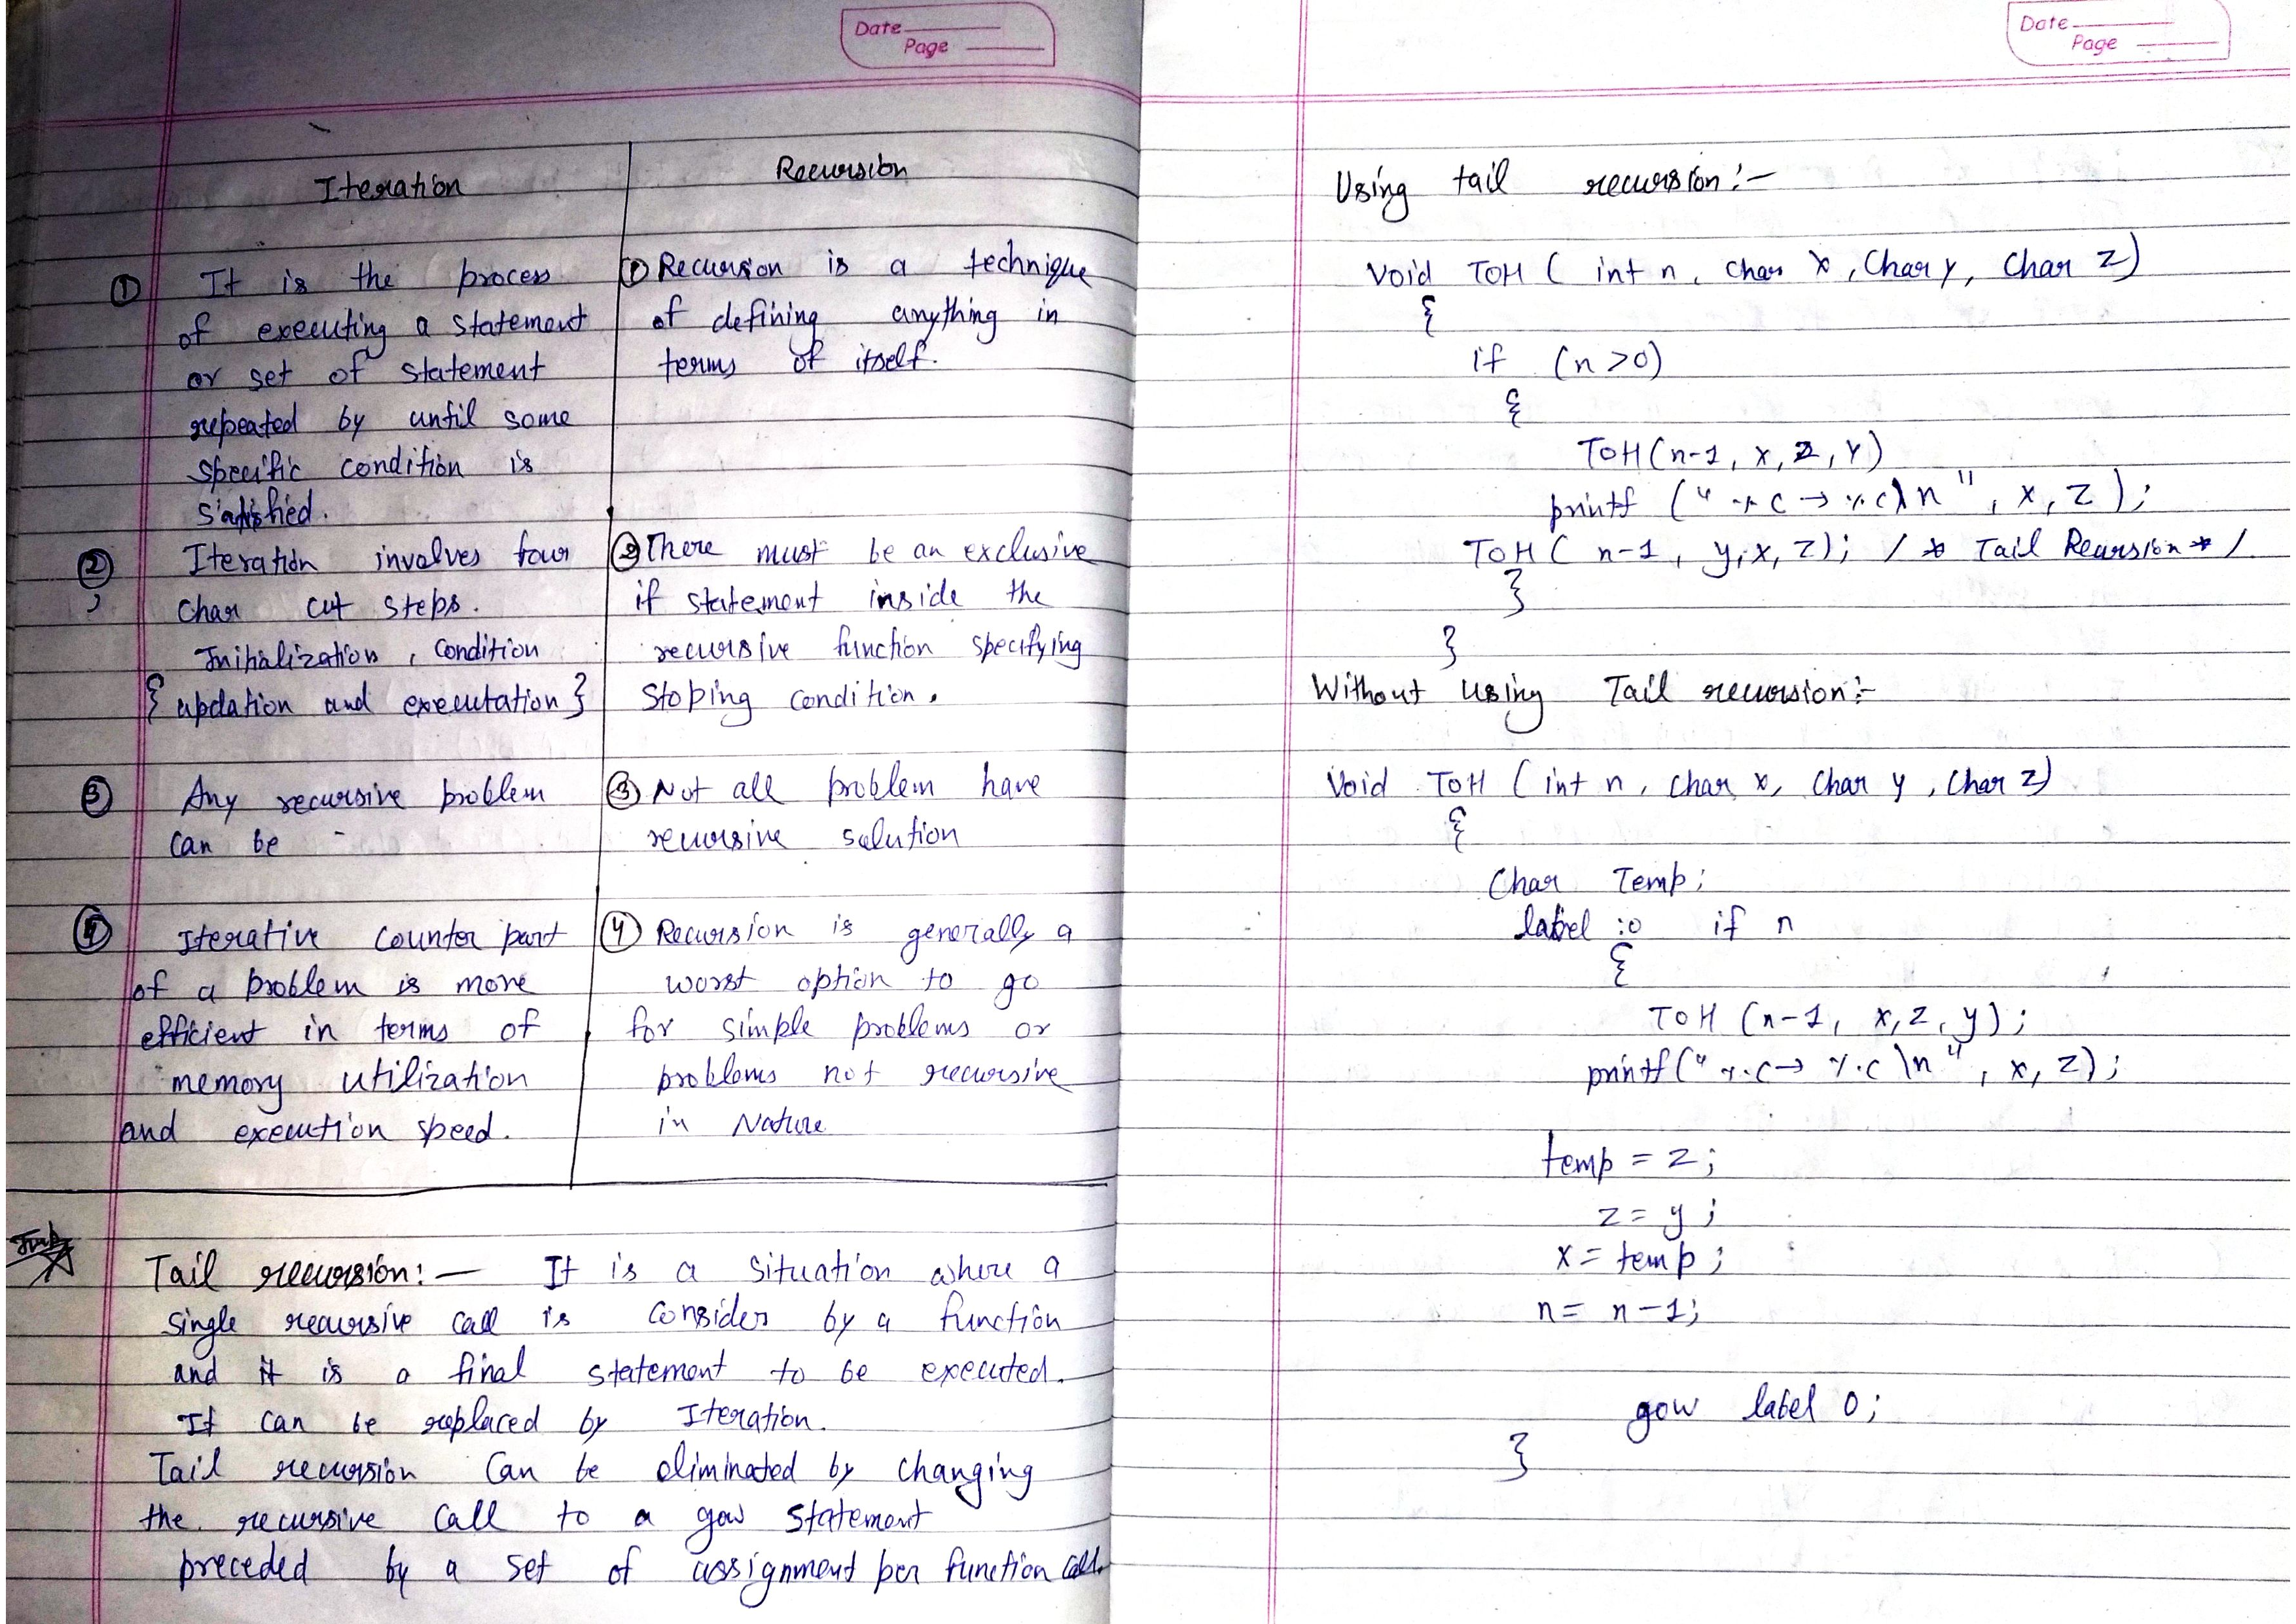 Date
Page
Iteration
Recursion
① It is the process
of executing a statement
or set of statement
repeated by until some
specific condition is
satisfied.
① Recursion is a technique
of defining anything in
terms of itself.
② Iteration involves four
char cut steps.
Initialization, condition
{ updation and executation }
② There must be an exclusive
if statement inside the
recursive function specifying
stoping condition.
③ Any recursive problem
can be -
③ Not all problem have
recursive solution
④ Iterative counter part
of a problem is more
efficient in terms of
memory utilization
and execution speed.
④ Recursion is generally a
worst option to go
for simple problems or
problems not recursive
in Nature
Tail recursion:- It is a situation where a
single recursive call is consider by a function
and it is a final statement to be executed.
It can be replaced by Iteration.
Tail recursion can be eliminated by changing
the recursive call to a gow statement
preceded by a set of assignment per function call.
Date
Page
Using tail recursion:-
Void TOH ( int n, char x, Char y, Char z)
{
if (n>0)
{
TOH(n-1, x, z, y)
printf ("%c → %c\n", x, z);
TOH ( n-1, y, x, z); /* Tail Recursion */
}
}
Without using Tail recursion:-
Void TOH ( int n, char x, Char y, Char z)
{
Char Temp;
label :0 if n
{
TOH (n-1, x, z, y);
printf("%c → %c \n", x, z);
temp = z;
z = y;
x = temp;
n = n-1;
gow label 0;
}